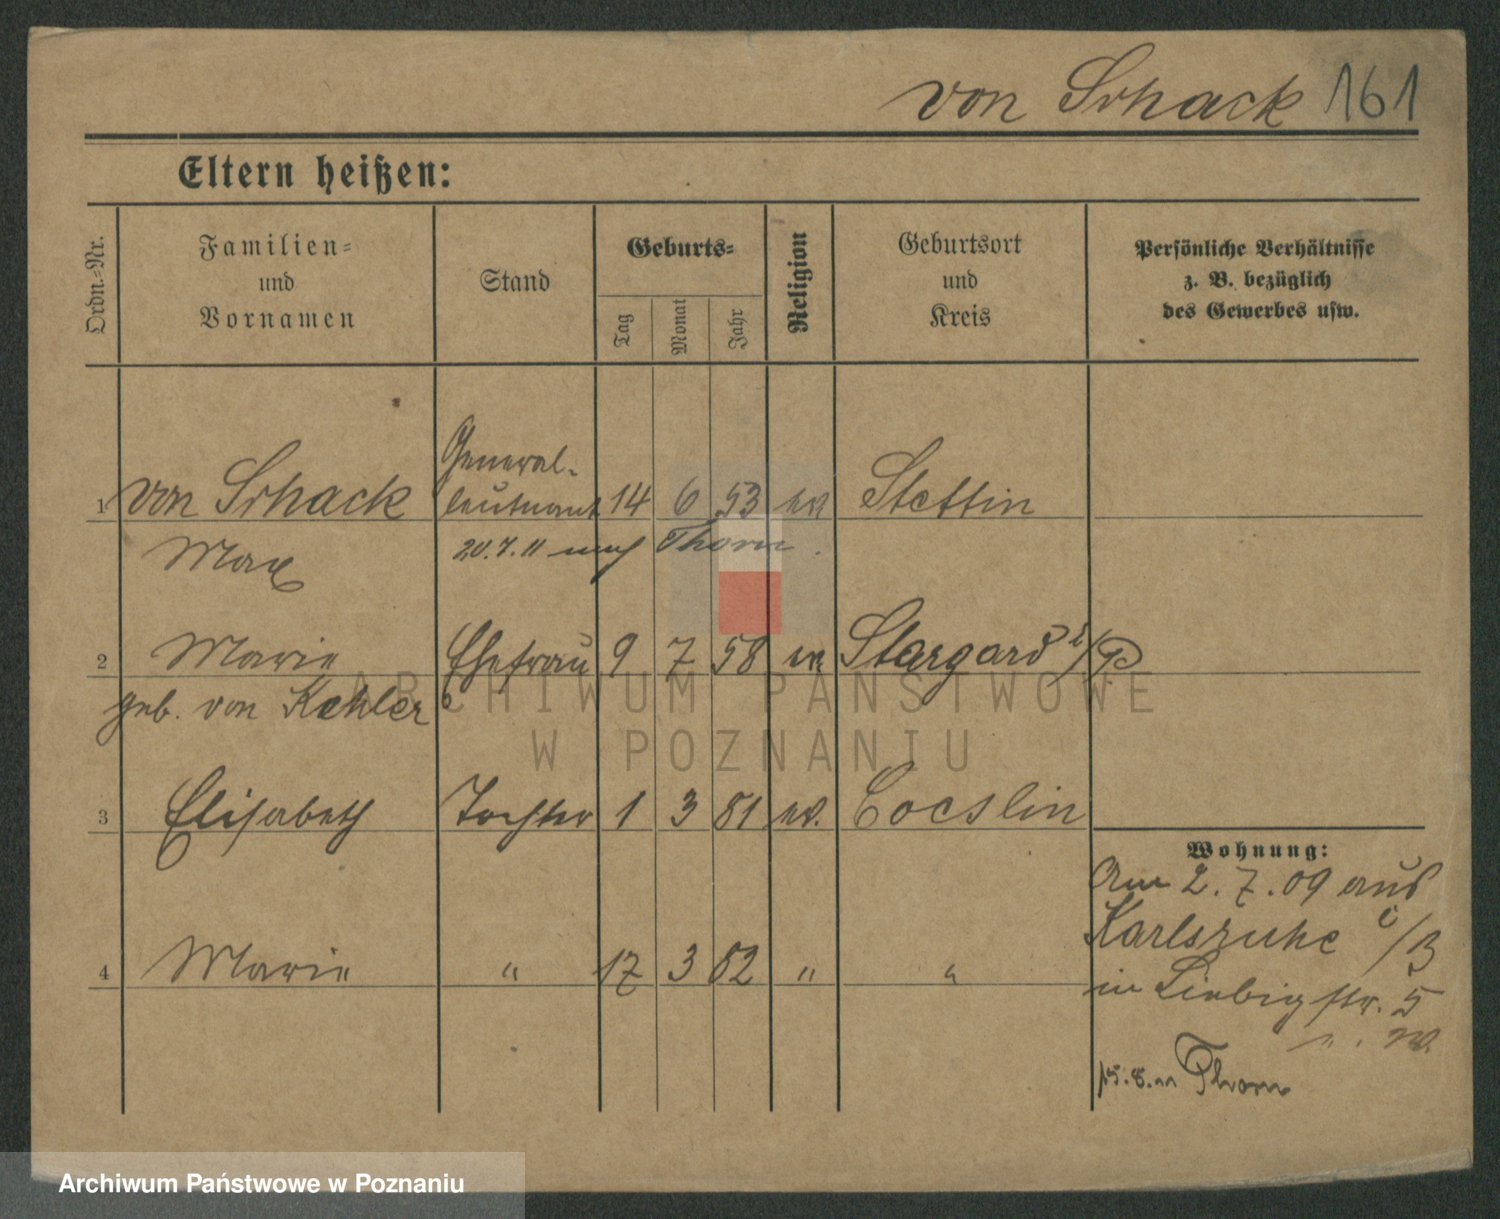 von Schack 161
Eltern heißen:
Ordn.-Nr.
Familien-
und
Vornamen
Stand
Geburts-
Tag
Monat
Jahr
Religion
Geburtsort
und
Kreis
Persönliche Verhältnisse
z. B. bezüglich
des Gewerbes usw.
General-
1 von Schack leutnant 14 6 53 ev Stettin
Max 20.7.11 nach Thorn.
2 Marie Ehefrau 9 7 58 ev Stargard i/P
geb. von Kehler
3 Elisabeth Tochter 1 3 81 ev. Coeslin
4 Marie " 17 3 82 " "
Wohnung:
Am 2.7.09 aus
Karlsruhe i/B
in Liebigstr. 5
15.8.11 Thorn
ARCHIWUM PAŃSTWOWE
W POZNANIU
Archiwum Państwowe w Poznaniu